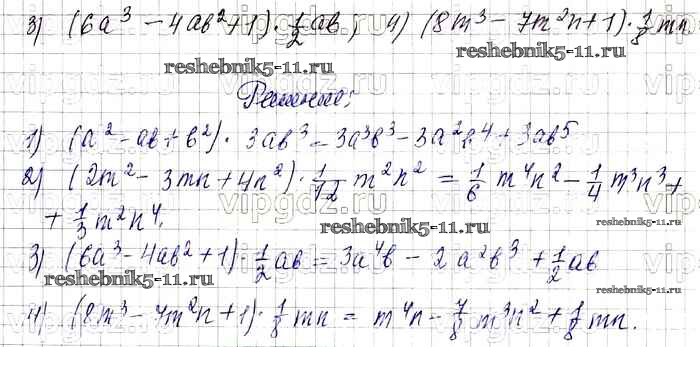 3) (6a³ - 4ab² + 1) · 1/2 ab; 4) (8m³ - 7m²n + 1) · 1/8 mn.
reshebnik5-11.ru
Решение:
1) (a² - ab + b²) · 3ab³ = 3a³b³ - 3a²b⁴ + 3ab⁵
2) (2m² - 3mn + 4n²) · 1/12 m²n² = 1/6 m⁴n² - 1/4 m³n³ +
+ 1/3 m²n⁴.
reshebnik5-11.ru
3) (6a³ - 4ab² + 1) · 1/2 ab = 3a⁴b - 2a²b³ + 1/2 ab
reshebnik5-11.ru
reshebnik5-11.ru
4) (8m³ - 7m²n + 1) · 1/8 mn = m⁴n - 7/8 m³n² + 1/8 mn.